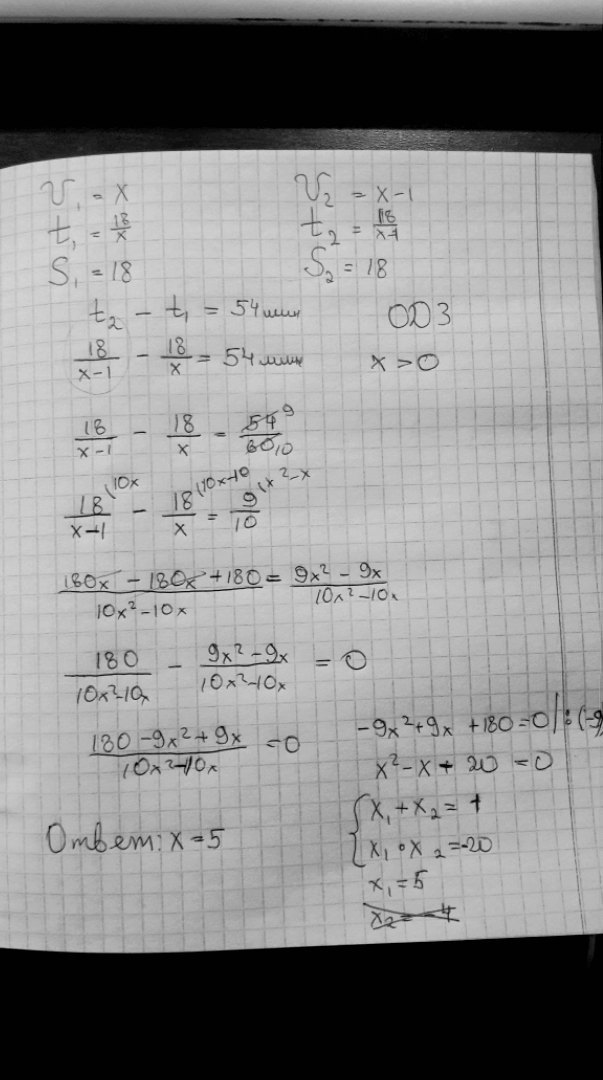 V₁ = x
V₂ = x-1
t₁ = 18/x
t₂ = 18/x-1
S₁ = 18
S₂ = 18
t₂ - t₁ = 54 мин
ОДЗ
18/x-1 - 18/x = 54 мин
x > 0
18/x-1 - 18/x = 54 9/60 10
18/x-1 (10x - 18/x (10x-10 = 9/10 (x²-x
180x - 180x + 180/10x²-10x = 9x² - 9x/10x²-10x
180/10x²-10x - 9x²-9x/10x²-10x = 0
180-9x²+9x/10x²-10x = 0
-9x²+9x+180=0 | :(-9)
x²-x + 20 = 0
x₁ + x₂ = 1
x₁ • x₂ = -20
x₁ = 5
x₂ = -4
Ответ: x = 5